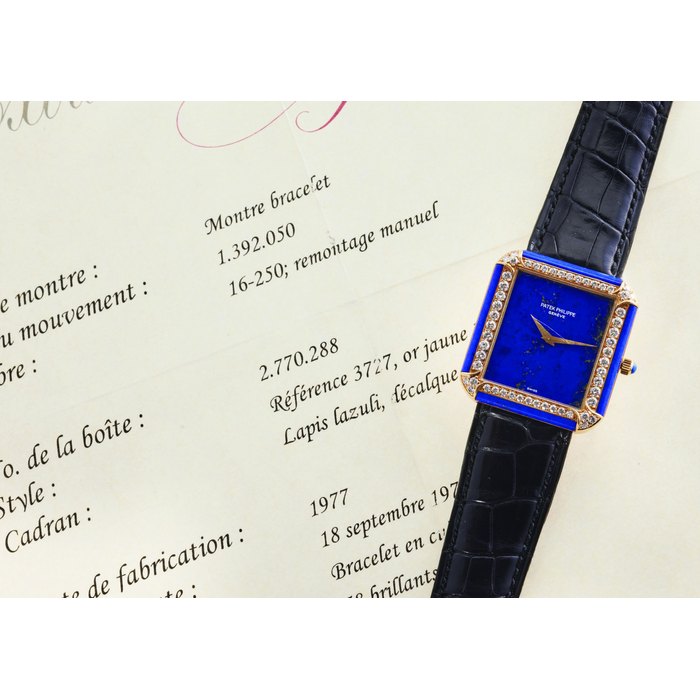 Montre bracelet
e montre : 1.392.050
u mouvement : 16-250; remontage manuel
bre :
o. de la boîte : 2.770.288
Style : Référence 3727, or jaune
Cadran : Lapis lazuli, décalque
te de fabrication : 1977
nte : 18 septembre 197
Bracelet en cu
58 brillants
PATEK PHILIPPE
GENÈVE
SWISS